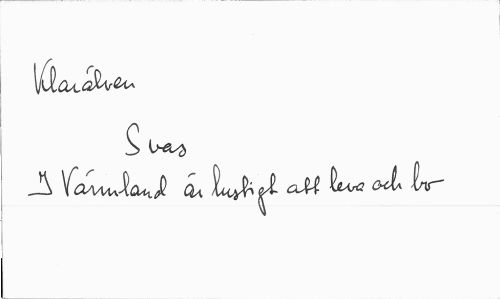 Klarälven
Svas
I Värmland är lustigt att leva och bo